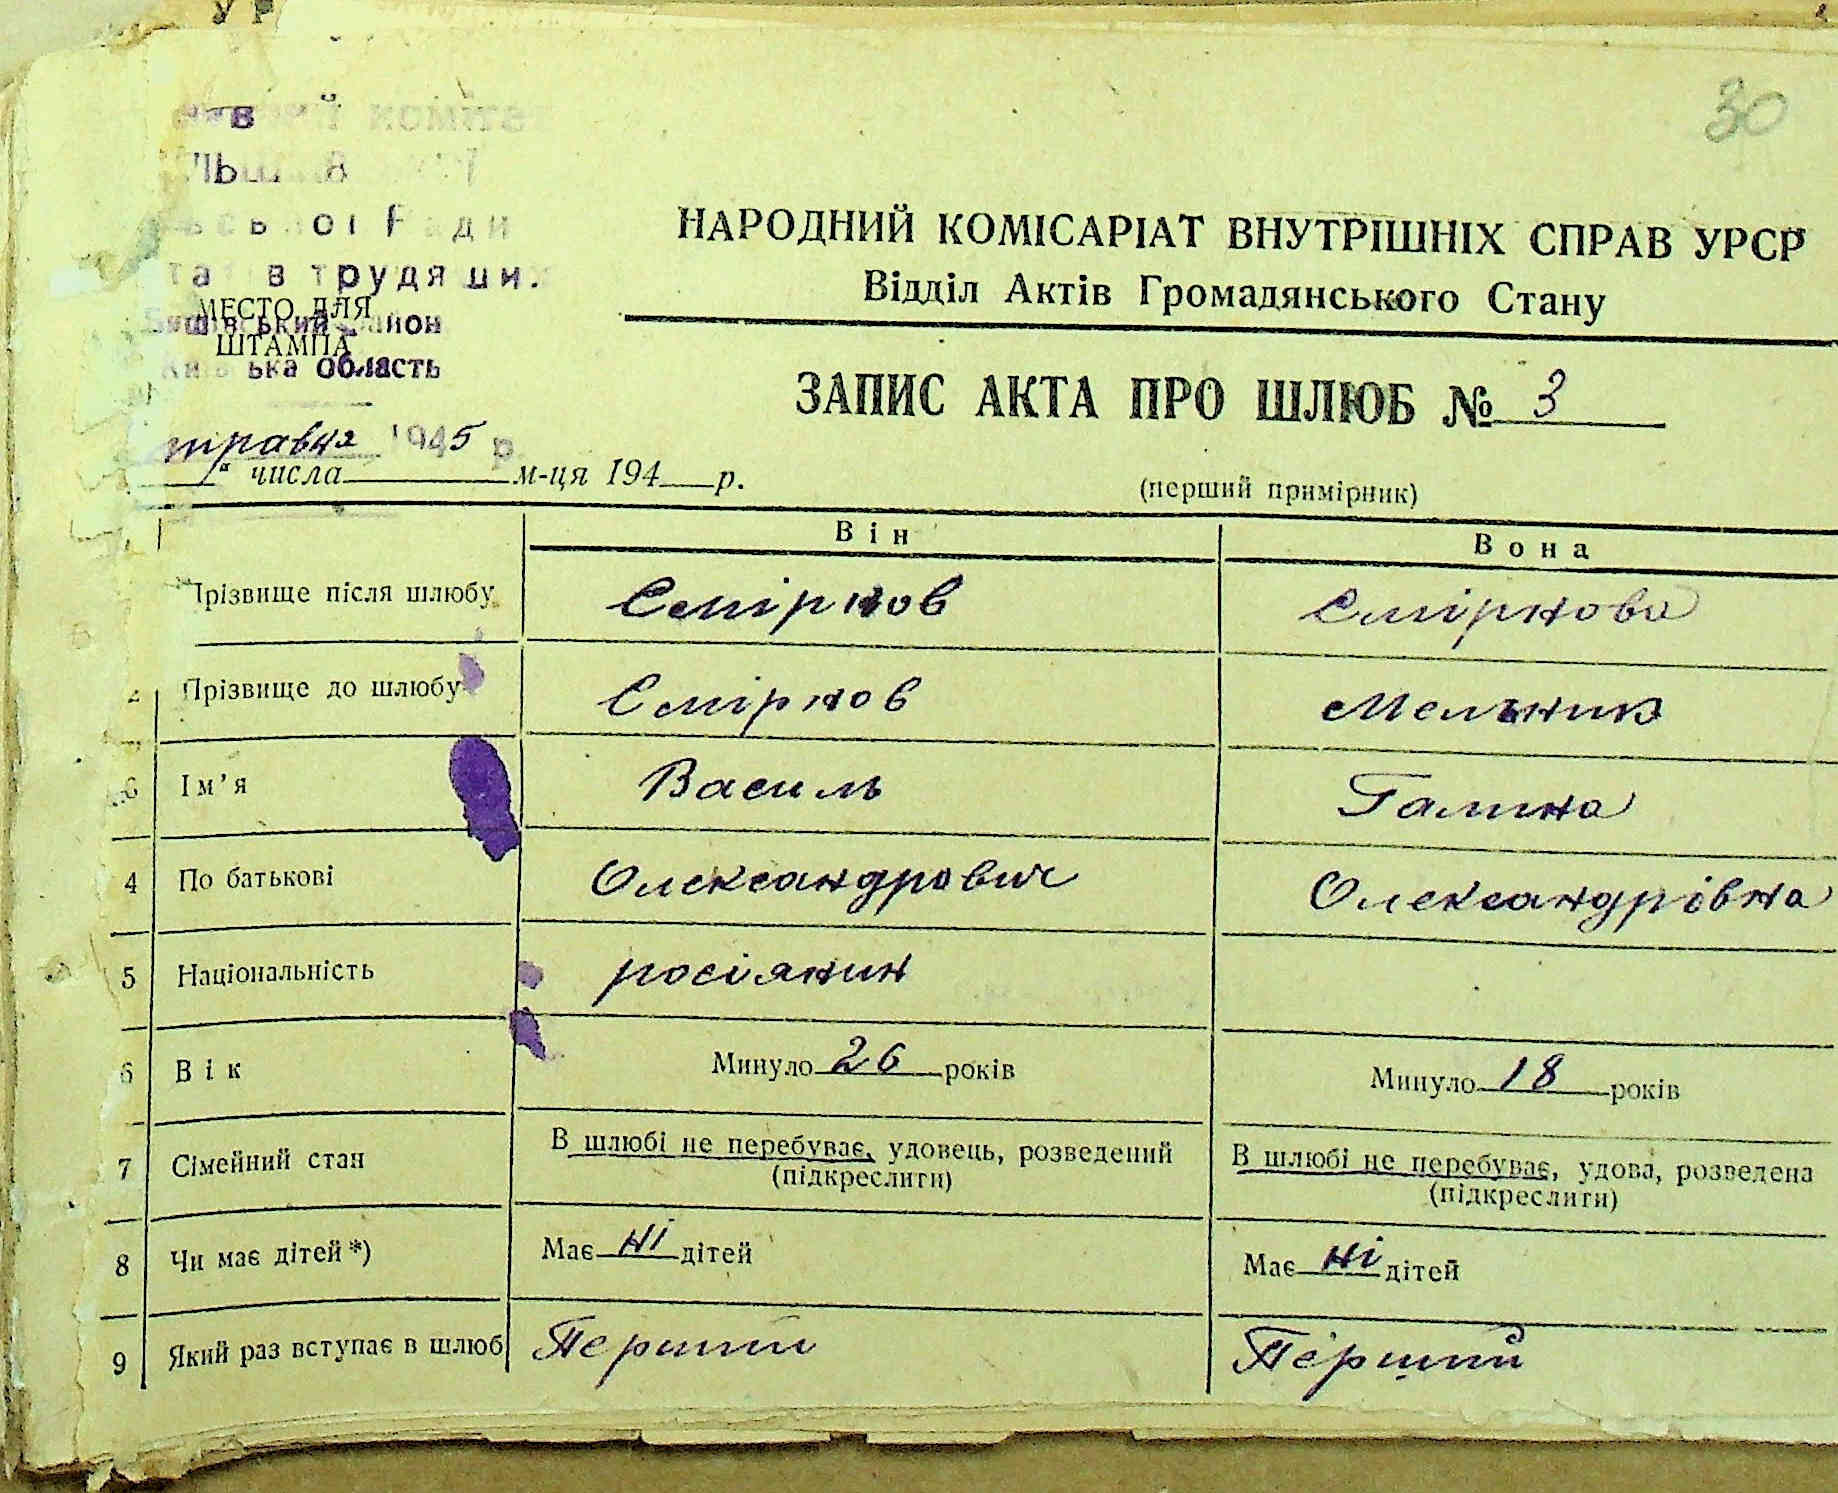 УР
30
комітет
Ради
трудящих
МЕСТО ДЛЯ
ШТАМПА
район
область
травня 1945 р.
числа м-ця 194 р.
НАРОДНИЙ КОМІСАРІАТ ВНУТРІШНІХ СПРАВ УРСР
Відділ Актів Громадянського Стану
ЗАПИС АКТА ПРО ШЛЮБ № 3
(перший примірник)
Він Вона
Прізвище після шлюбу Смірнов Смірнова
2 Прізвище до шлюбу Смірнов Мельник
3 Ім'я Василь Галина
4 По батькові Олександрович Олександрівна
5 Національність росіянин
6 Вік Минуло 26 років Минуло 18 років
7 Сімейний стан В шлюбі не перебуває, удовець, розведений В шлюбі не перебуває, удова, розведена
(підкреслити) (підкреслити)
8 Чи має дітей*) Має ні дітей Має ні дітей
9 Який раз вступає в шлюб Перший Перший